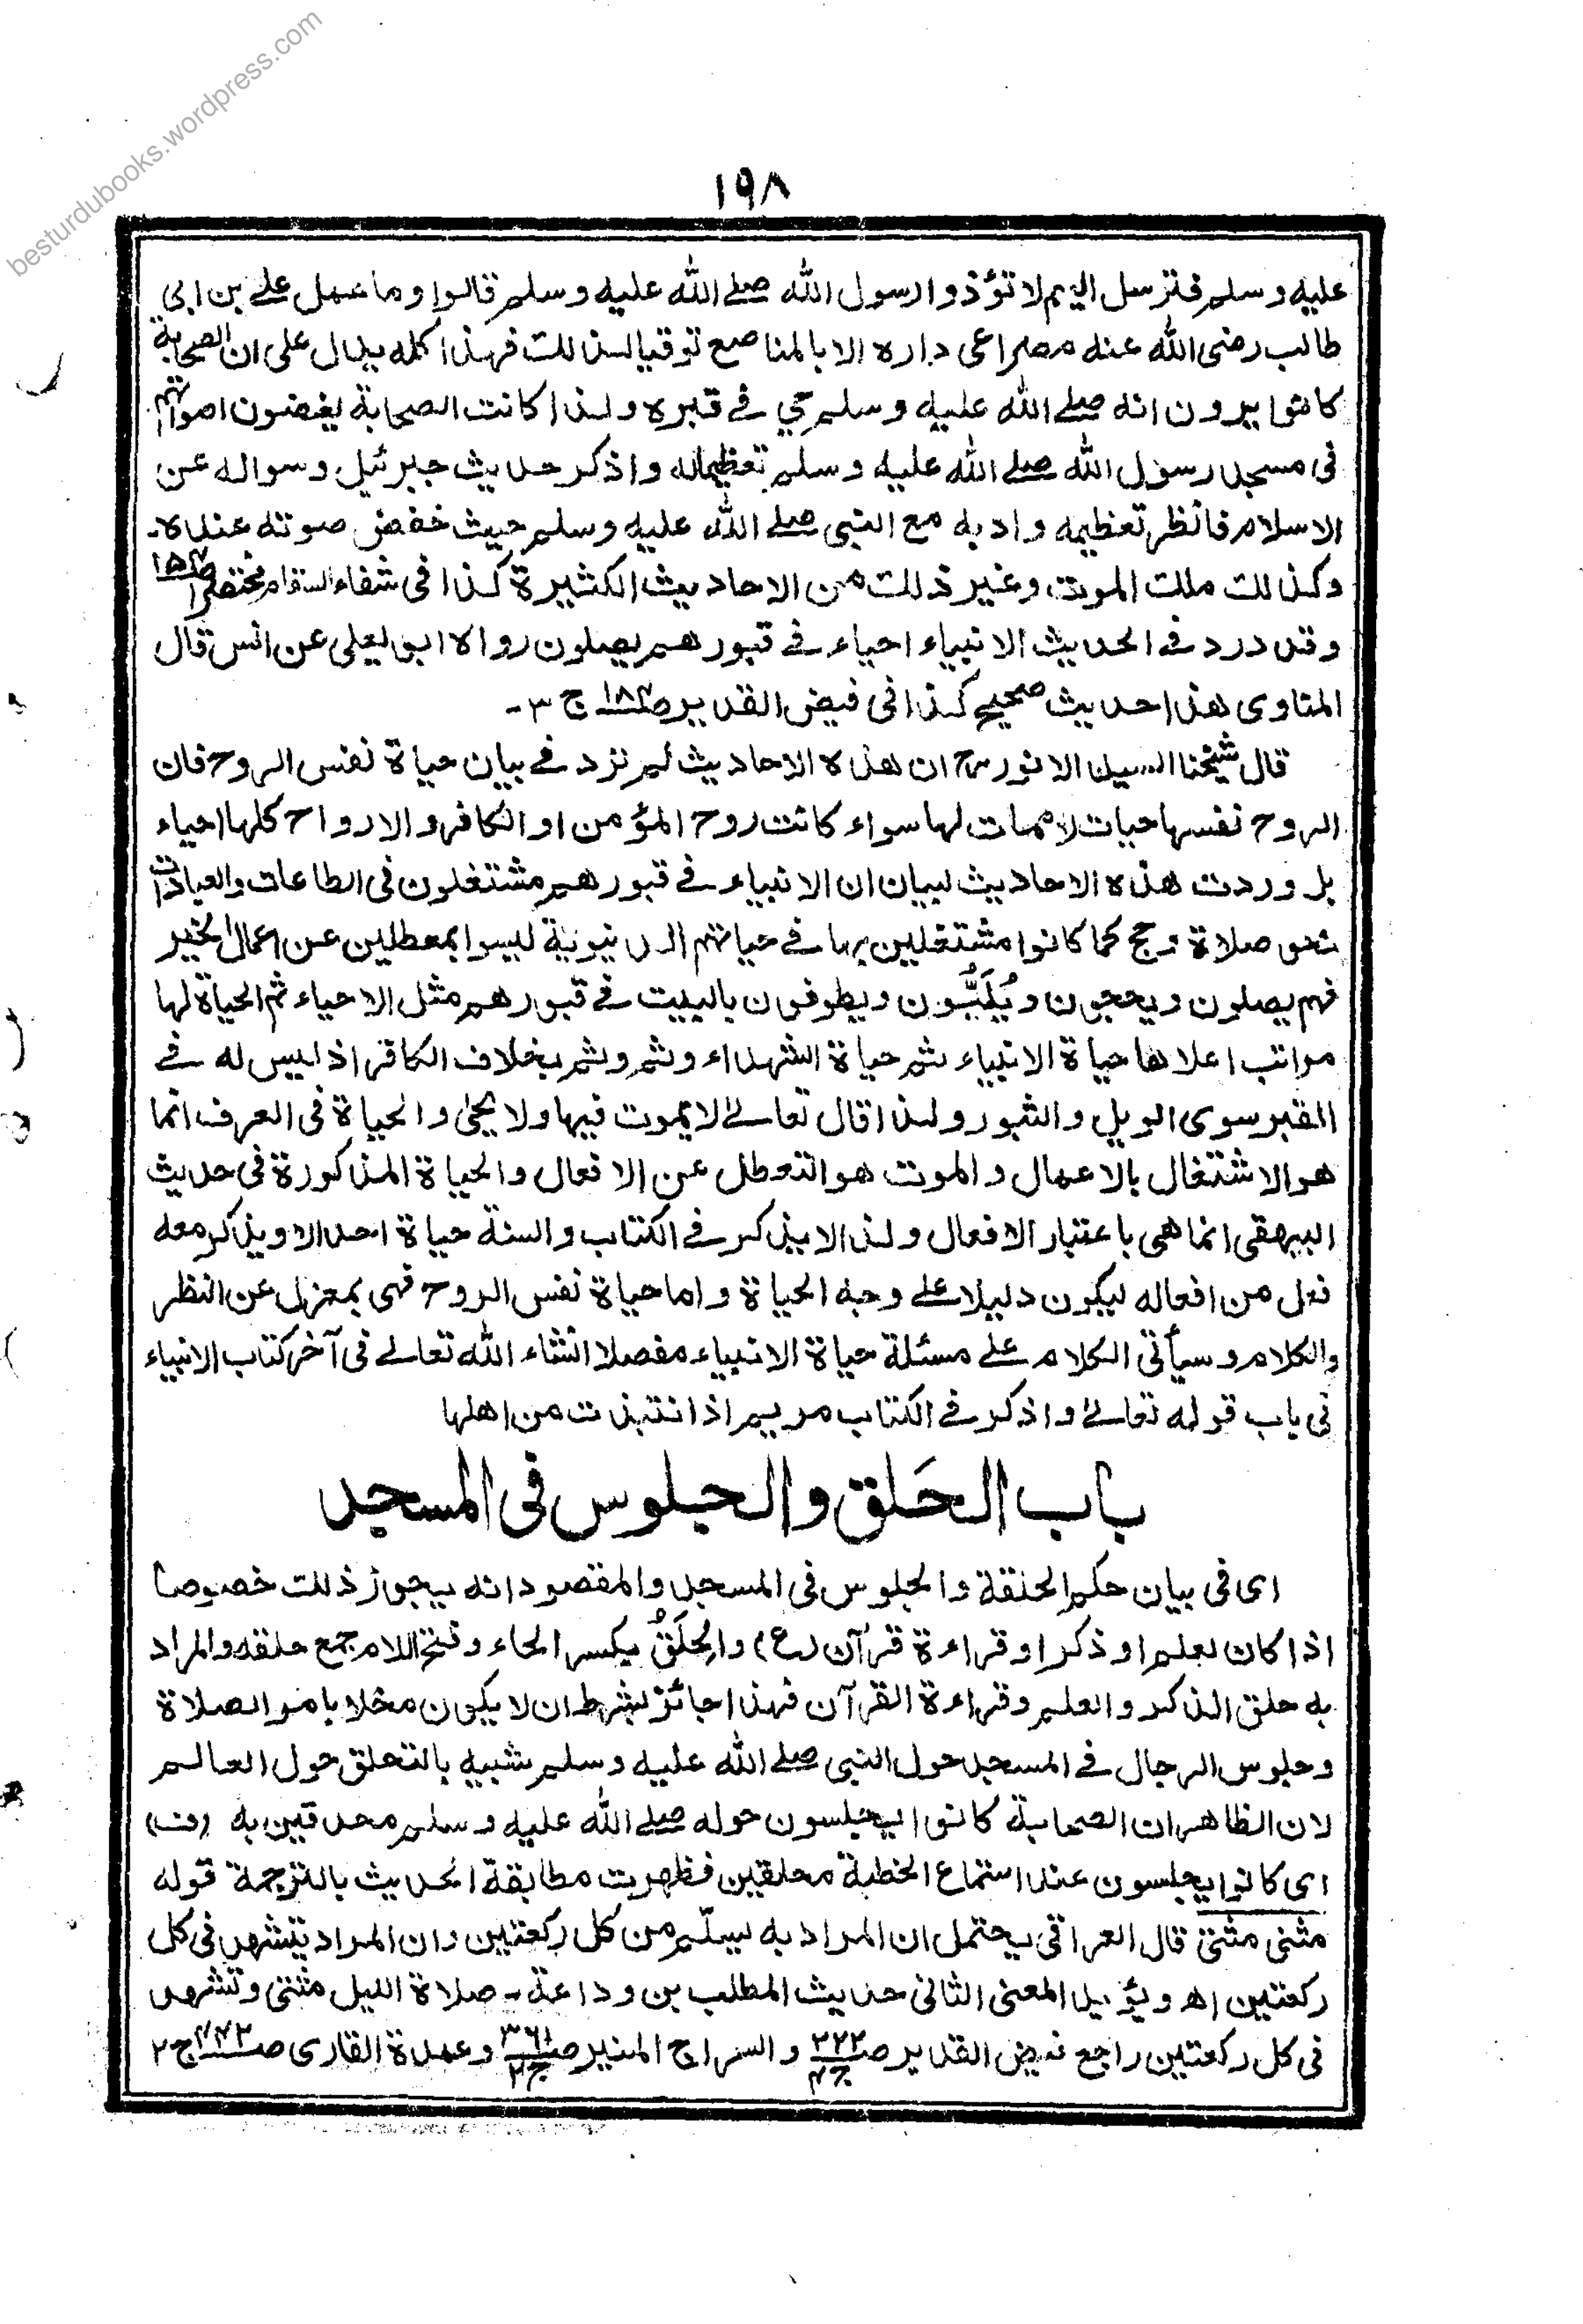 besturdubooks.wordpress.com
۱۹۸
عليه وسلم فترسل اليهم لا تؤذوا رسول الله صلے الله عليه وسلم قالوا وما عمل علے بن ابی
طالب رضی الله عنه مصراعی داره الا بالمناصع توقيا لذلك فهذا كله يدل علی ان الصحابة
كانوا يرون انه صلے الله عليه وسلم حي فے قبره ولذا كانت الصحابة يغضون اصواتهم
فی مسجد رسول الله صلے الله عليه وسلم تعظيما له واذكر حديث جبرئيل وسواله عن
الاسلام فانظر تعظيمه وادبه مع النبی صلے الله عليه وسلم حيث خفض صوته عنده۔
وكذلك ملك الموت وغير ذلك من الاحاديث الكثيرة كذا فی شفاء السقام مختصرا
وقد ورد فے الحديث الانبياء احياء فے قبورهم يصلون رواه ابو يعلی عن انس قال
المناوی هذا حديث صحيح كذا فی فيض القدير ص۱۸۴ ج ۳۔
قال شيخنا السيد الانور ؒ ان هذه الاحاديث لم ترد فے بيان حياة نفس الروح فان
الروح نفسها حيات لا ممات لها سواء كانت روح المؤمن او الكافر والارواح كلها احياء
بل وردت هذه الاحاديث لبيان ان الانبياء فے قبورهم مشتغلون فی الطاعات والعبادات
نحو صلاة وحج كما كانوا مشتغلين بها فے حياتهم الدنيوية ليسوا بمعطلين عن اعمال الخير
فهم يصلون ويحجون ويُلَبُّون ويطوفون بالبيت فے قبورهم مثل الاحياء ثم الحياة لها
مراتب اعلاها حياة الانبياء ثم حياة الشهداء وثم وثم بخلاف الكافر اذ ليس له فے
القبر سوی الويل والثبور ولذا قال تعالےٰ لا يموت فيها ولا يحيٰ والحياة فی العرف انما
هو الاشتغال بالاعمال والموت هو التعطل عن الافعال والحياة المذكورة فی حديث
البيهقی انما هی باعتبار الافعال ولذا لا يذكر فے الكتاب والسنة حياة احد الا ويذكر معه
فعل من افعاله ليكون دليلا علے وجه الحياة واما حياة نفس الروح فهی بمعزل عن النظر
والكلام وسيأتی الكلام علے مسئلة حياة الانبياء مفصلا انشاء الله تعالے فی آخر كتاب الانبياء
فی باب قوله تعالےٰ واذكر فے الكتاب مريم اذ انتبذت من اهلها
باب الحَلق والجلوس فی المسجد
ای فی بيان حكم الحلقة والجلوس فی المسجد والمقصود انه يجوز ذلك خصوصا
اذا كان لعلم او ذكر او قراءة قرآن (ع) والحِلَقُ بكسر الحاء وفتح اللام جمع حلقه والمراد
به حلق الذكر والعلم وقراءة القرآن فهذا جائز بشرط ان لا يكون مخلا بامر الصلاة
وجلوس الرجال فے المسجد حول النبی صلے الله عليه وسلم شبيه بالتحلق حول العالم
لان الظاهر ان الصحابة كانوا يجلسون حوله صلے الله عليه وسلم محدقين به (ف)
ای كانوا يجلسون عند استماع الخطبة محلقين فظهرت مطابقة الحديث بالترجمة قوله
مثنی مثنیٰ قال العراقی يحتمل ان المراد به يسلّم من كل ركعتين وان المراد يتشهد فی كل
ركعتين اھ ويؤيد المعنی الثانی حديث المطلب بن وداعة ۔ صلاة الليل مثنی وتشهد
فی كل ركعتين راجع فيض القدير ص۲۲۲ ج۴ والسراج المنير ص۳۶۱ ج۲ وعمدة القاری ص ج ۲